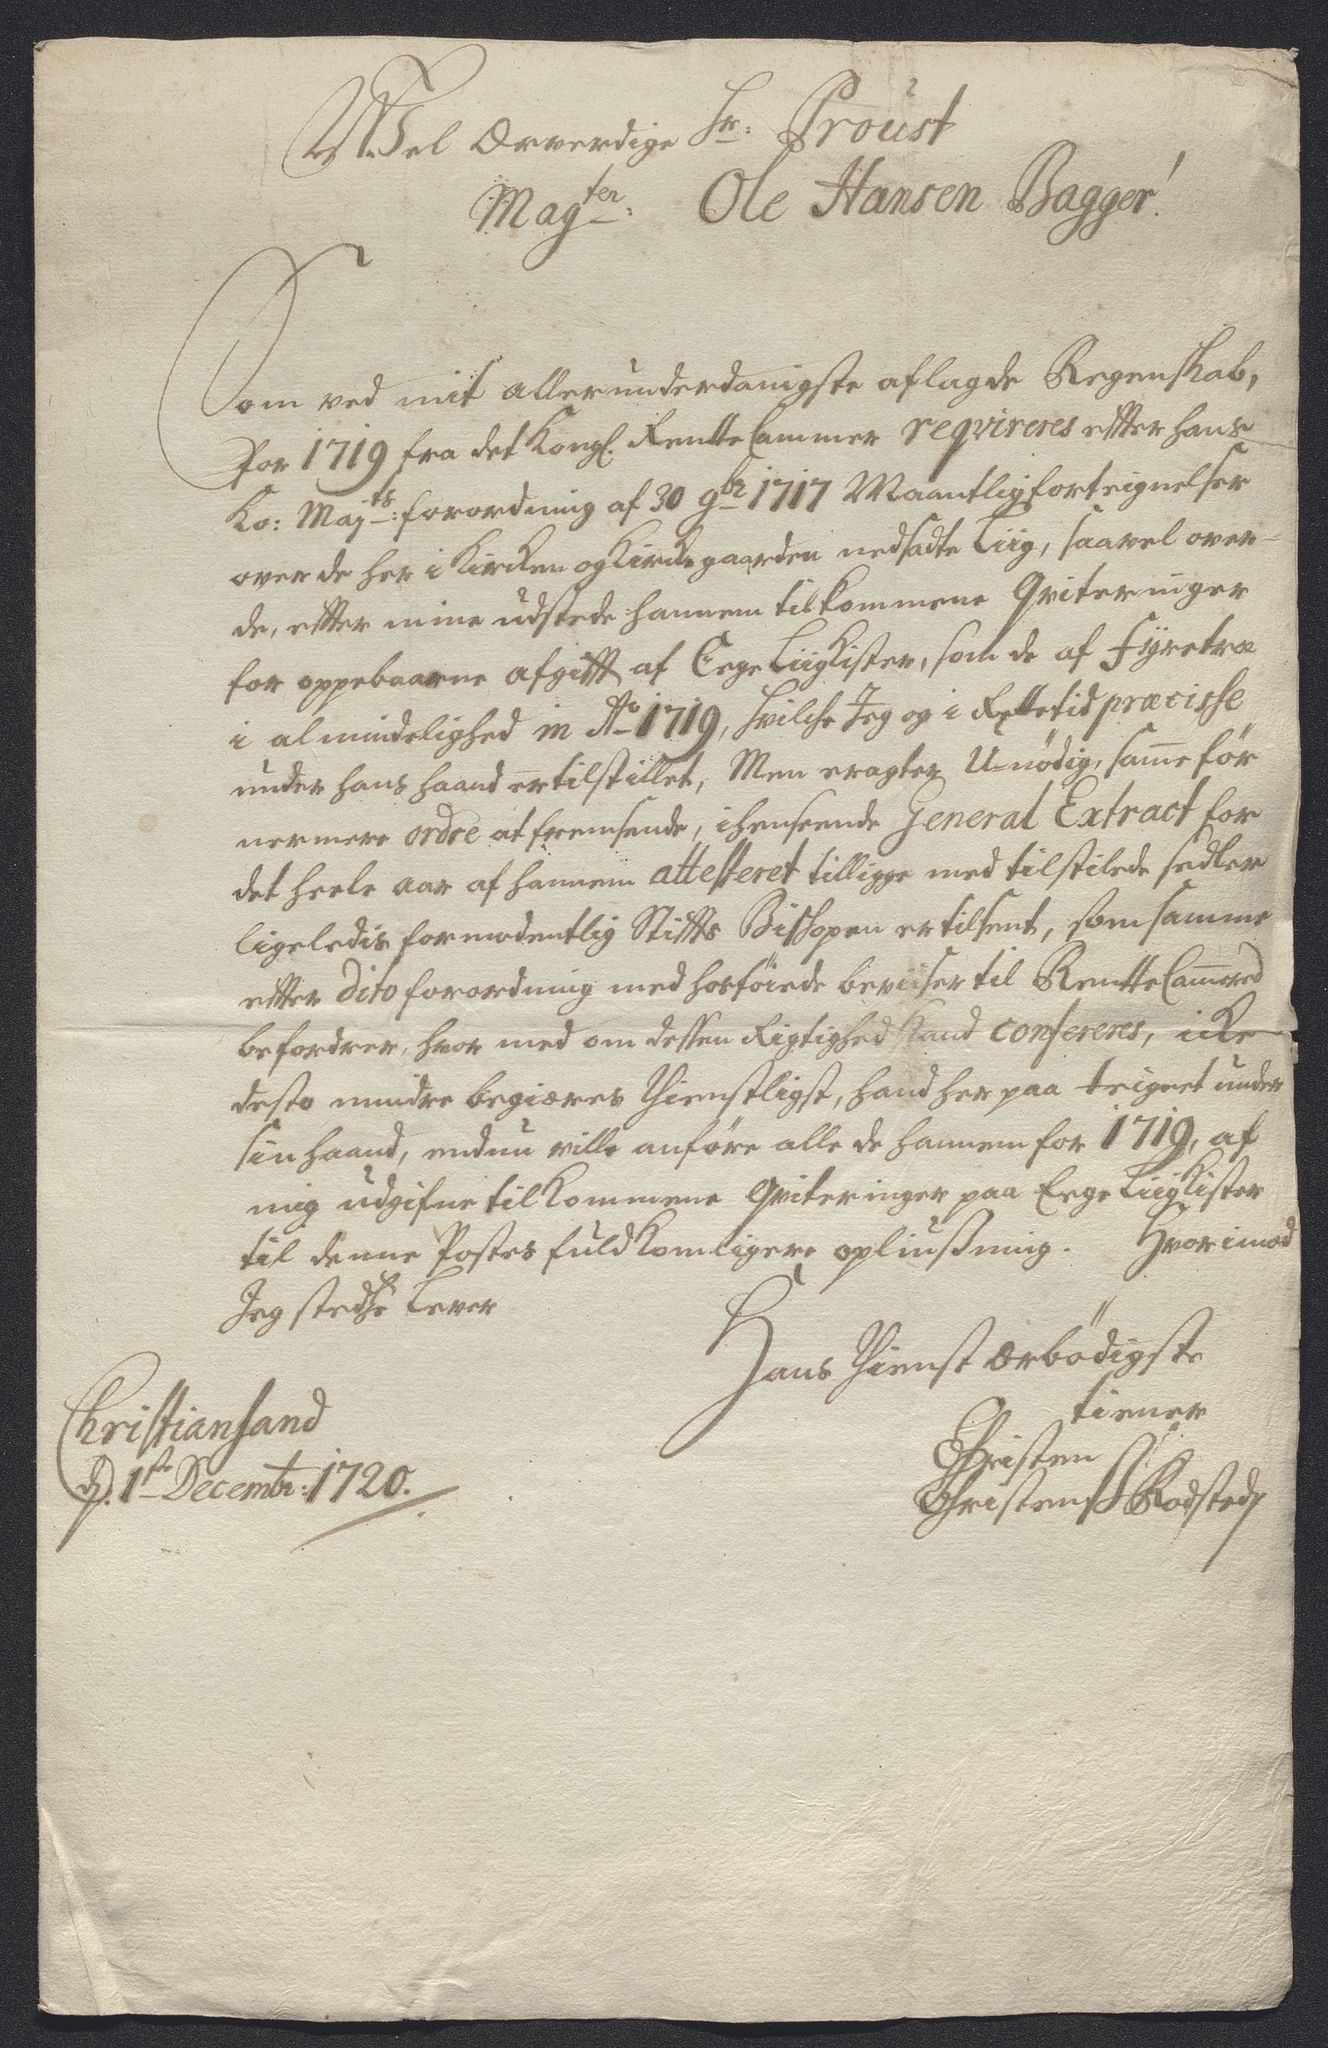 Wel Ærverdige Hr: Proust
Magten: Ole Hansen Bagger!
Som ved mit allerunderdanigste aflagde Regenskab,
For 1719 fra det Kongl. RentteCammer reqvireres efter hans
Ko: Majts: forordning af 30 9br 1717 Maantligfortegnelser
over de her i Kircken og Kirckegaarden nedsadte Liig, saavel over
de, efter mine udstede hannem tilkommene Qviteringer
for oppebaarne afgifft af EegeLiigKister, som de af Fyretræ
i almindelighed in Ao 1719, hvilche Jeg og i Rettetid præcisse
under hans haand er tilstillet, Men eragter U-nödig, samme för
nermere ordre at fremsende, i henseende General Extract for
det heele aar af hannem attesteret tilligge med tilstilede sedler
ligeledis formodentlig Stiffts Bischopen er tilsent, som samme
efter dito forordning med hosföiede beviiser til RentteCammered
befordrer, hvor med om dessen Rigtighed kand confereres, icke
desto mindre begiæres thienstligst, hand her paa teignet under
sin haand, endnu ville anföre alle de hannem for 1719, af
mig udgifne tilkommene Qviteringer paa EegeLiigKister
til denne Postes fuldkomligere opliusning. Hvorimod
Jeg stedse Lever
Hans thienst ærbödigste
tiener
Christen
Christens Rodsted
Christiansand
d. 1ste Decembr: 1720.